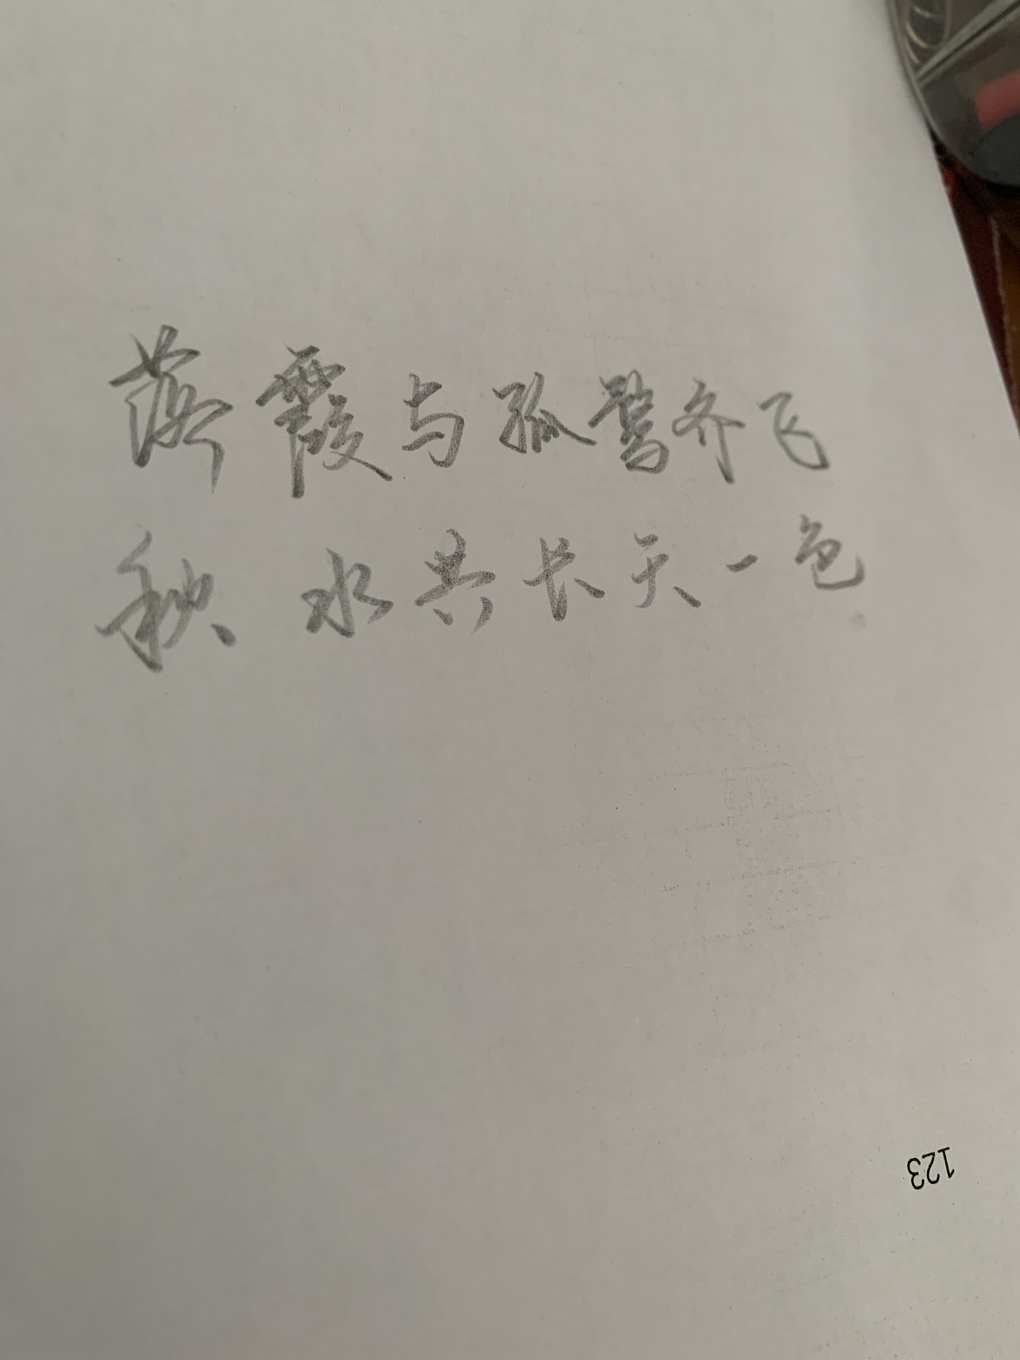 落霞与孤鹜齐飞
秋水共长天一色
123